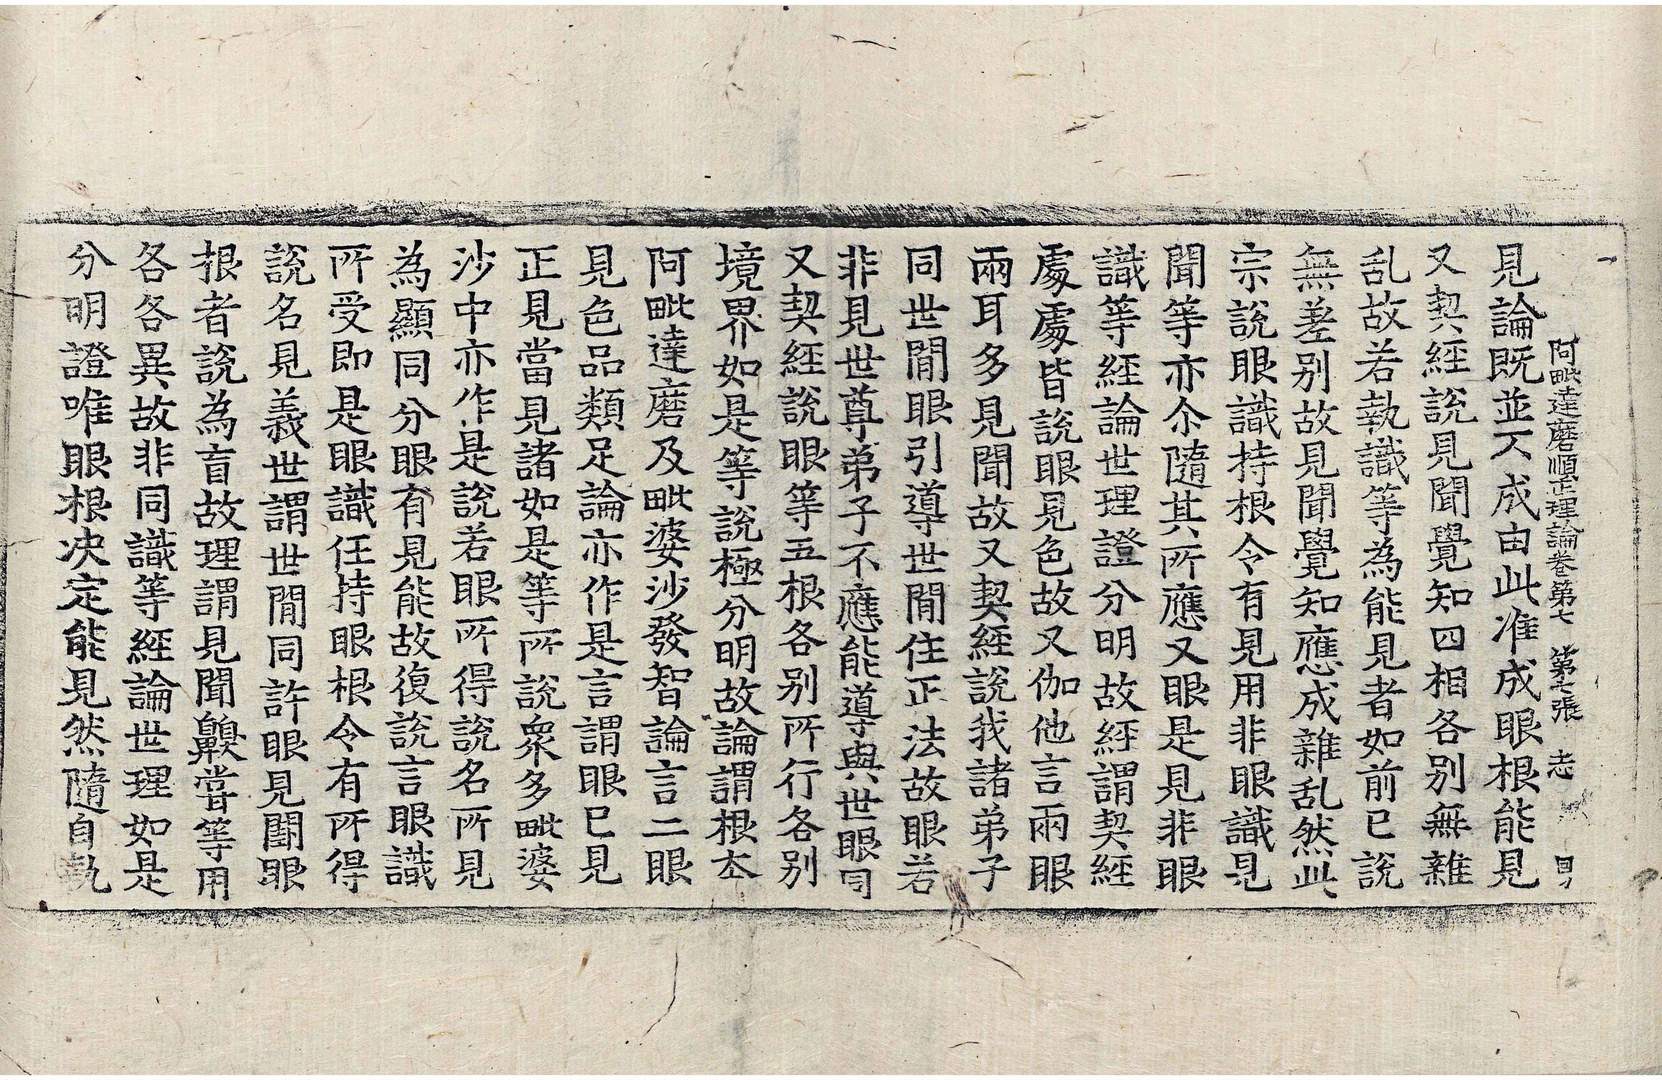 阿毗達磨順正理論卷第七　第七張　志
見論旣並不成由此准成眼根能見
又契經說見聞覺知四相各別無雜
乱故若執識等爲能見者如前已說
無差別故見聞覺知應成雜乱然此
宗說眼識持根令有見用非眼識見
聞等亦尒隨其所應又眼是見非眼
識等經論世理證分明故經謂契經
處處皆說眼見色故又伽他言兩眼
兩耳多見聞故又契經說我諸弟子
同世間眼引導世間住正法故眼若
非見世尊弟子不應能導與世眼同
又契經說眼等五根各別所行各別
境界如是等說極分明故論謂根本
阿毗達磨及毗婆沙發智論言二眼
見色品類足論亦作是言謂眼已見
正見當見諸如是等所說衆多毗婆
沙中亦作是說若眼所得說名所見
為顯同分眼有見能故復說言眼識
所受即是眼識任持眼根令有所得
說名見義世謂世間同許眼見闕眼
根者說為盲故理謂見聞齅甞等用
各各異故非同識等經論世理如是
分明證唯眼根决定能見然隨自執